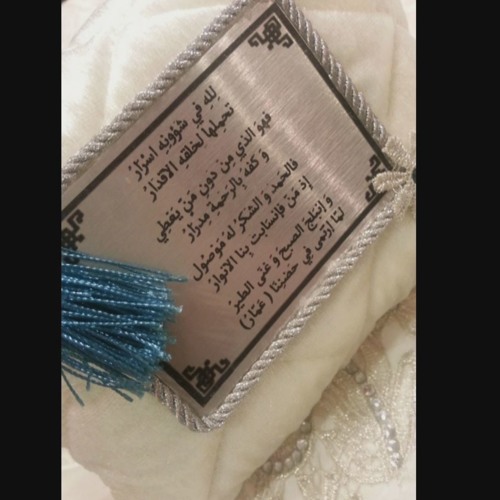 لِلِه في شؤونِه اسرَارْ
تحمِلها لخلقِه الاقدَارْ
فهوَ الذي مِن دونِ مَنٍ يعَطِي
و كفه بِالرَحمةِ مدرَارْ
فالحَمد و الشكرُ له مَوصُول
إذ مَنَ فانسابت بنا الانوارْ
و إنبلجَ الصبحُ و غنى الطير
لمّا إرتمى في حضننا ( عَمّارْ )